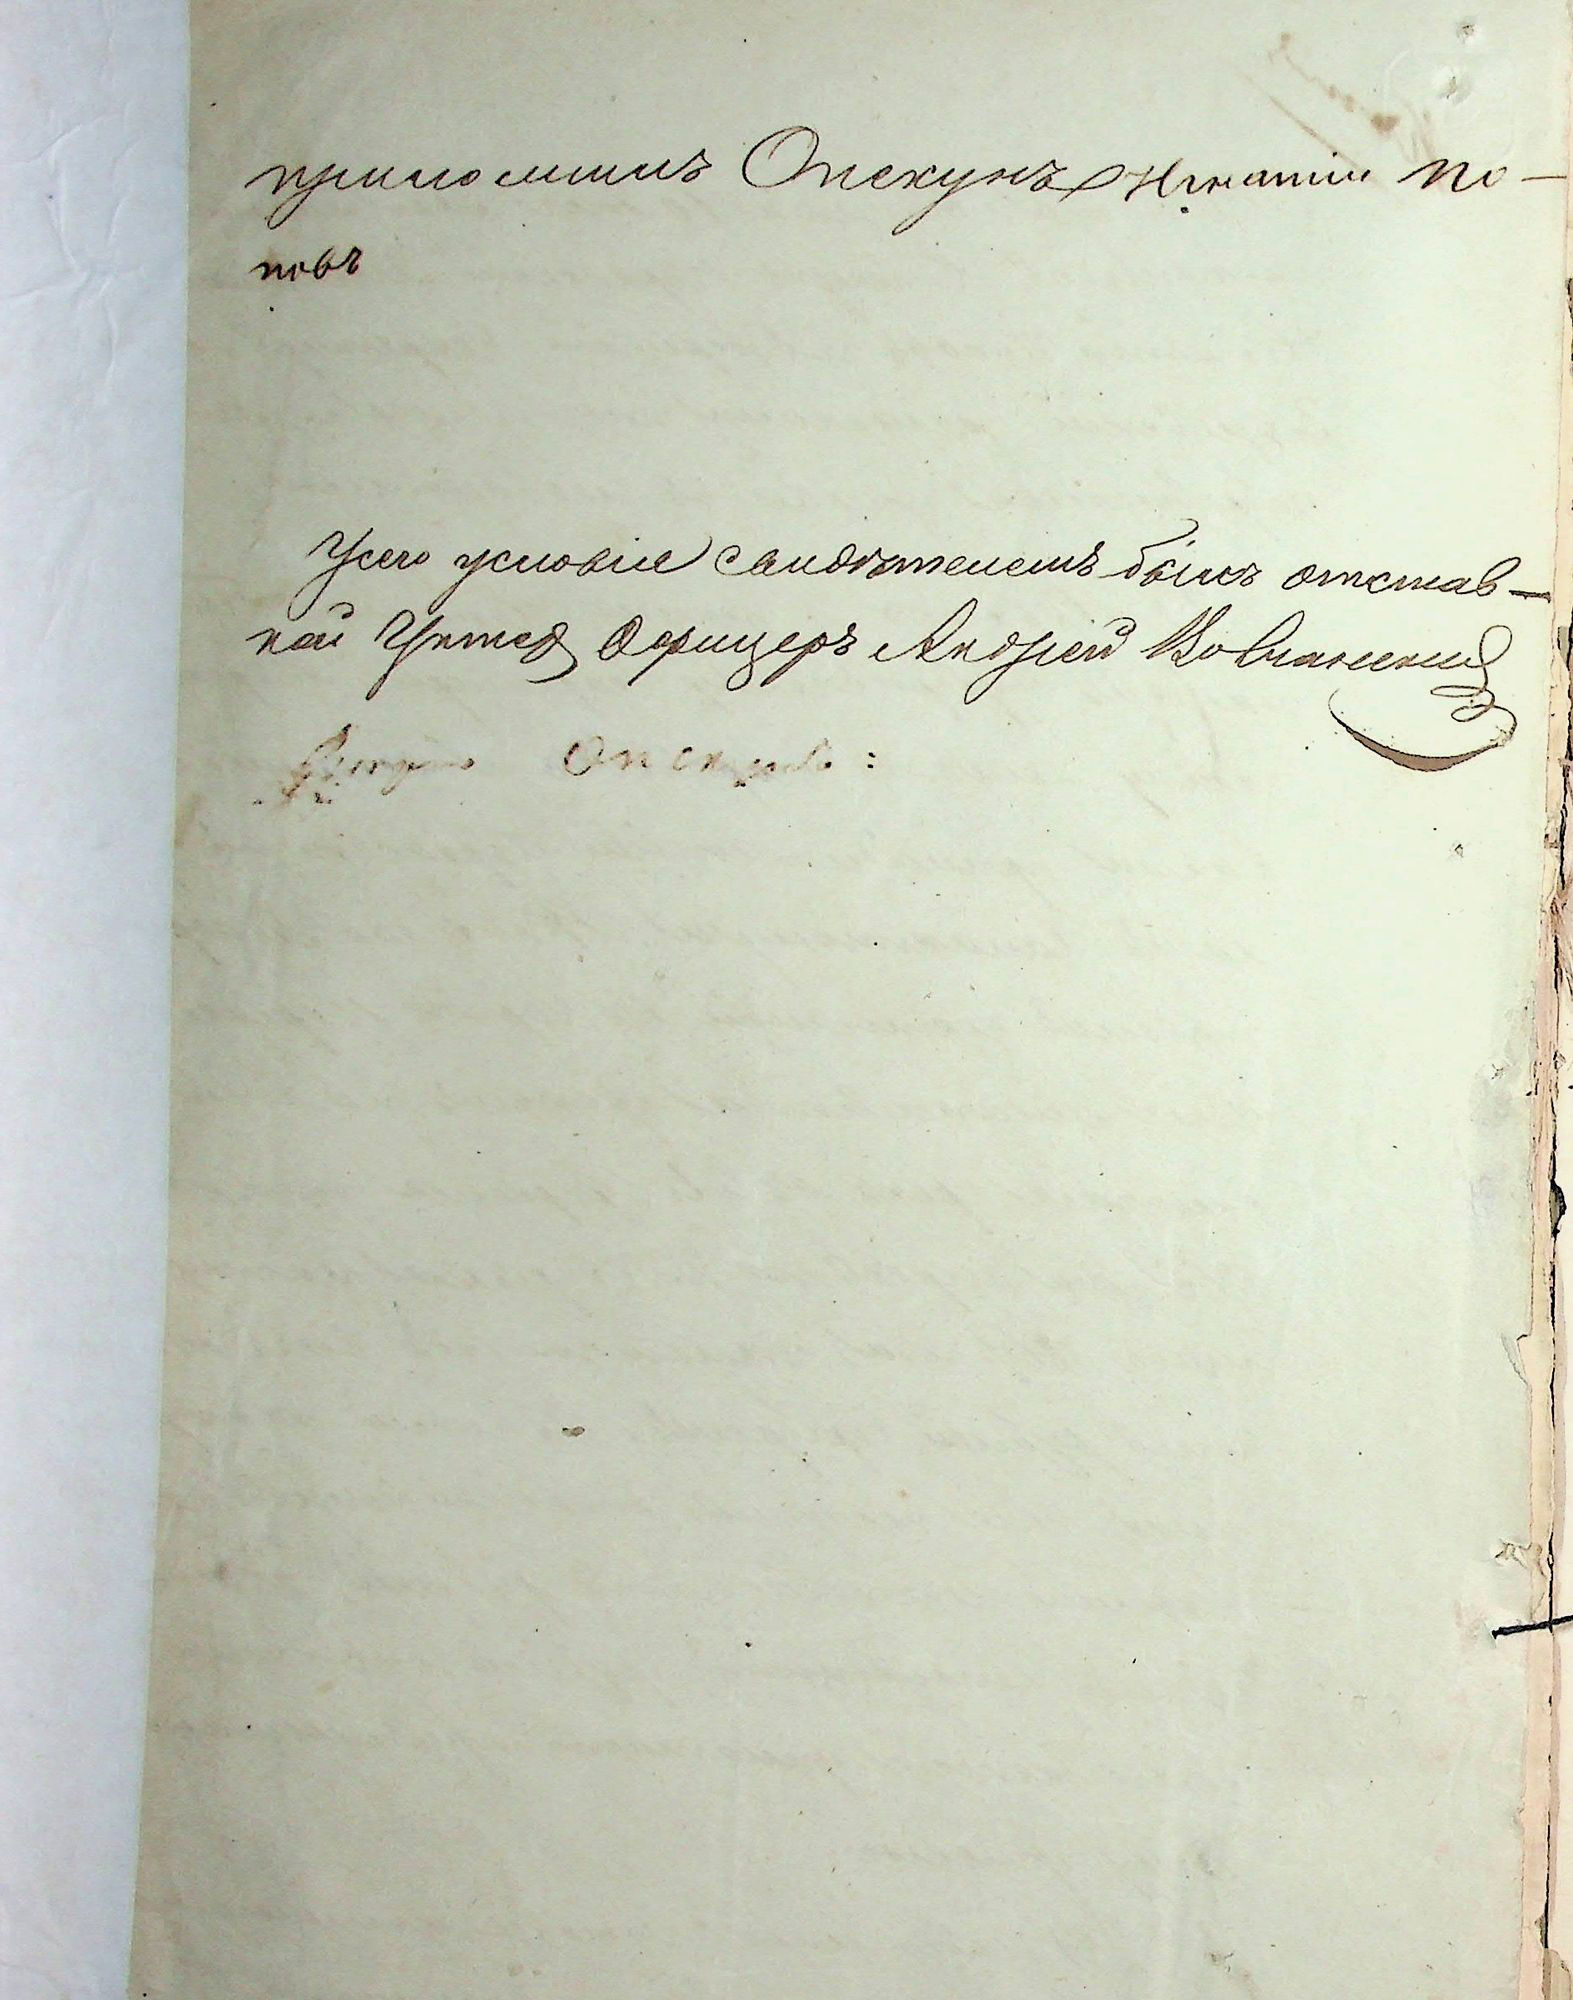 приложилъ Опекунъ Игнатій По-
повъ
Усего условія Свидѣтелемъ былъ отстав-
ной Унтеръ Офицеръ Андрей Волчанскій
Опекунъ: